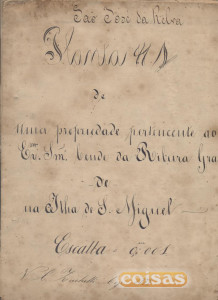 São José da Ribra
Planta
de
uma propriedade pertencente ao
Ex. Sm. Conde da Ribeira Gra
de
na Ilha de S. Miguel
Escalla 0,001
coisas